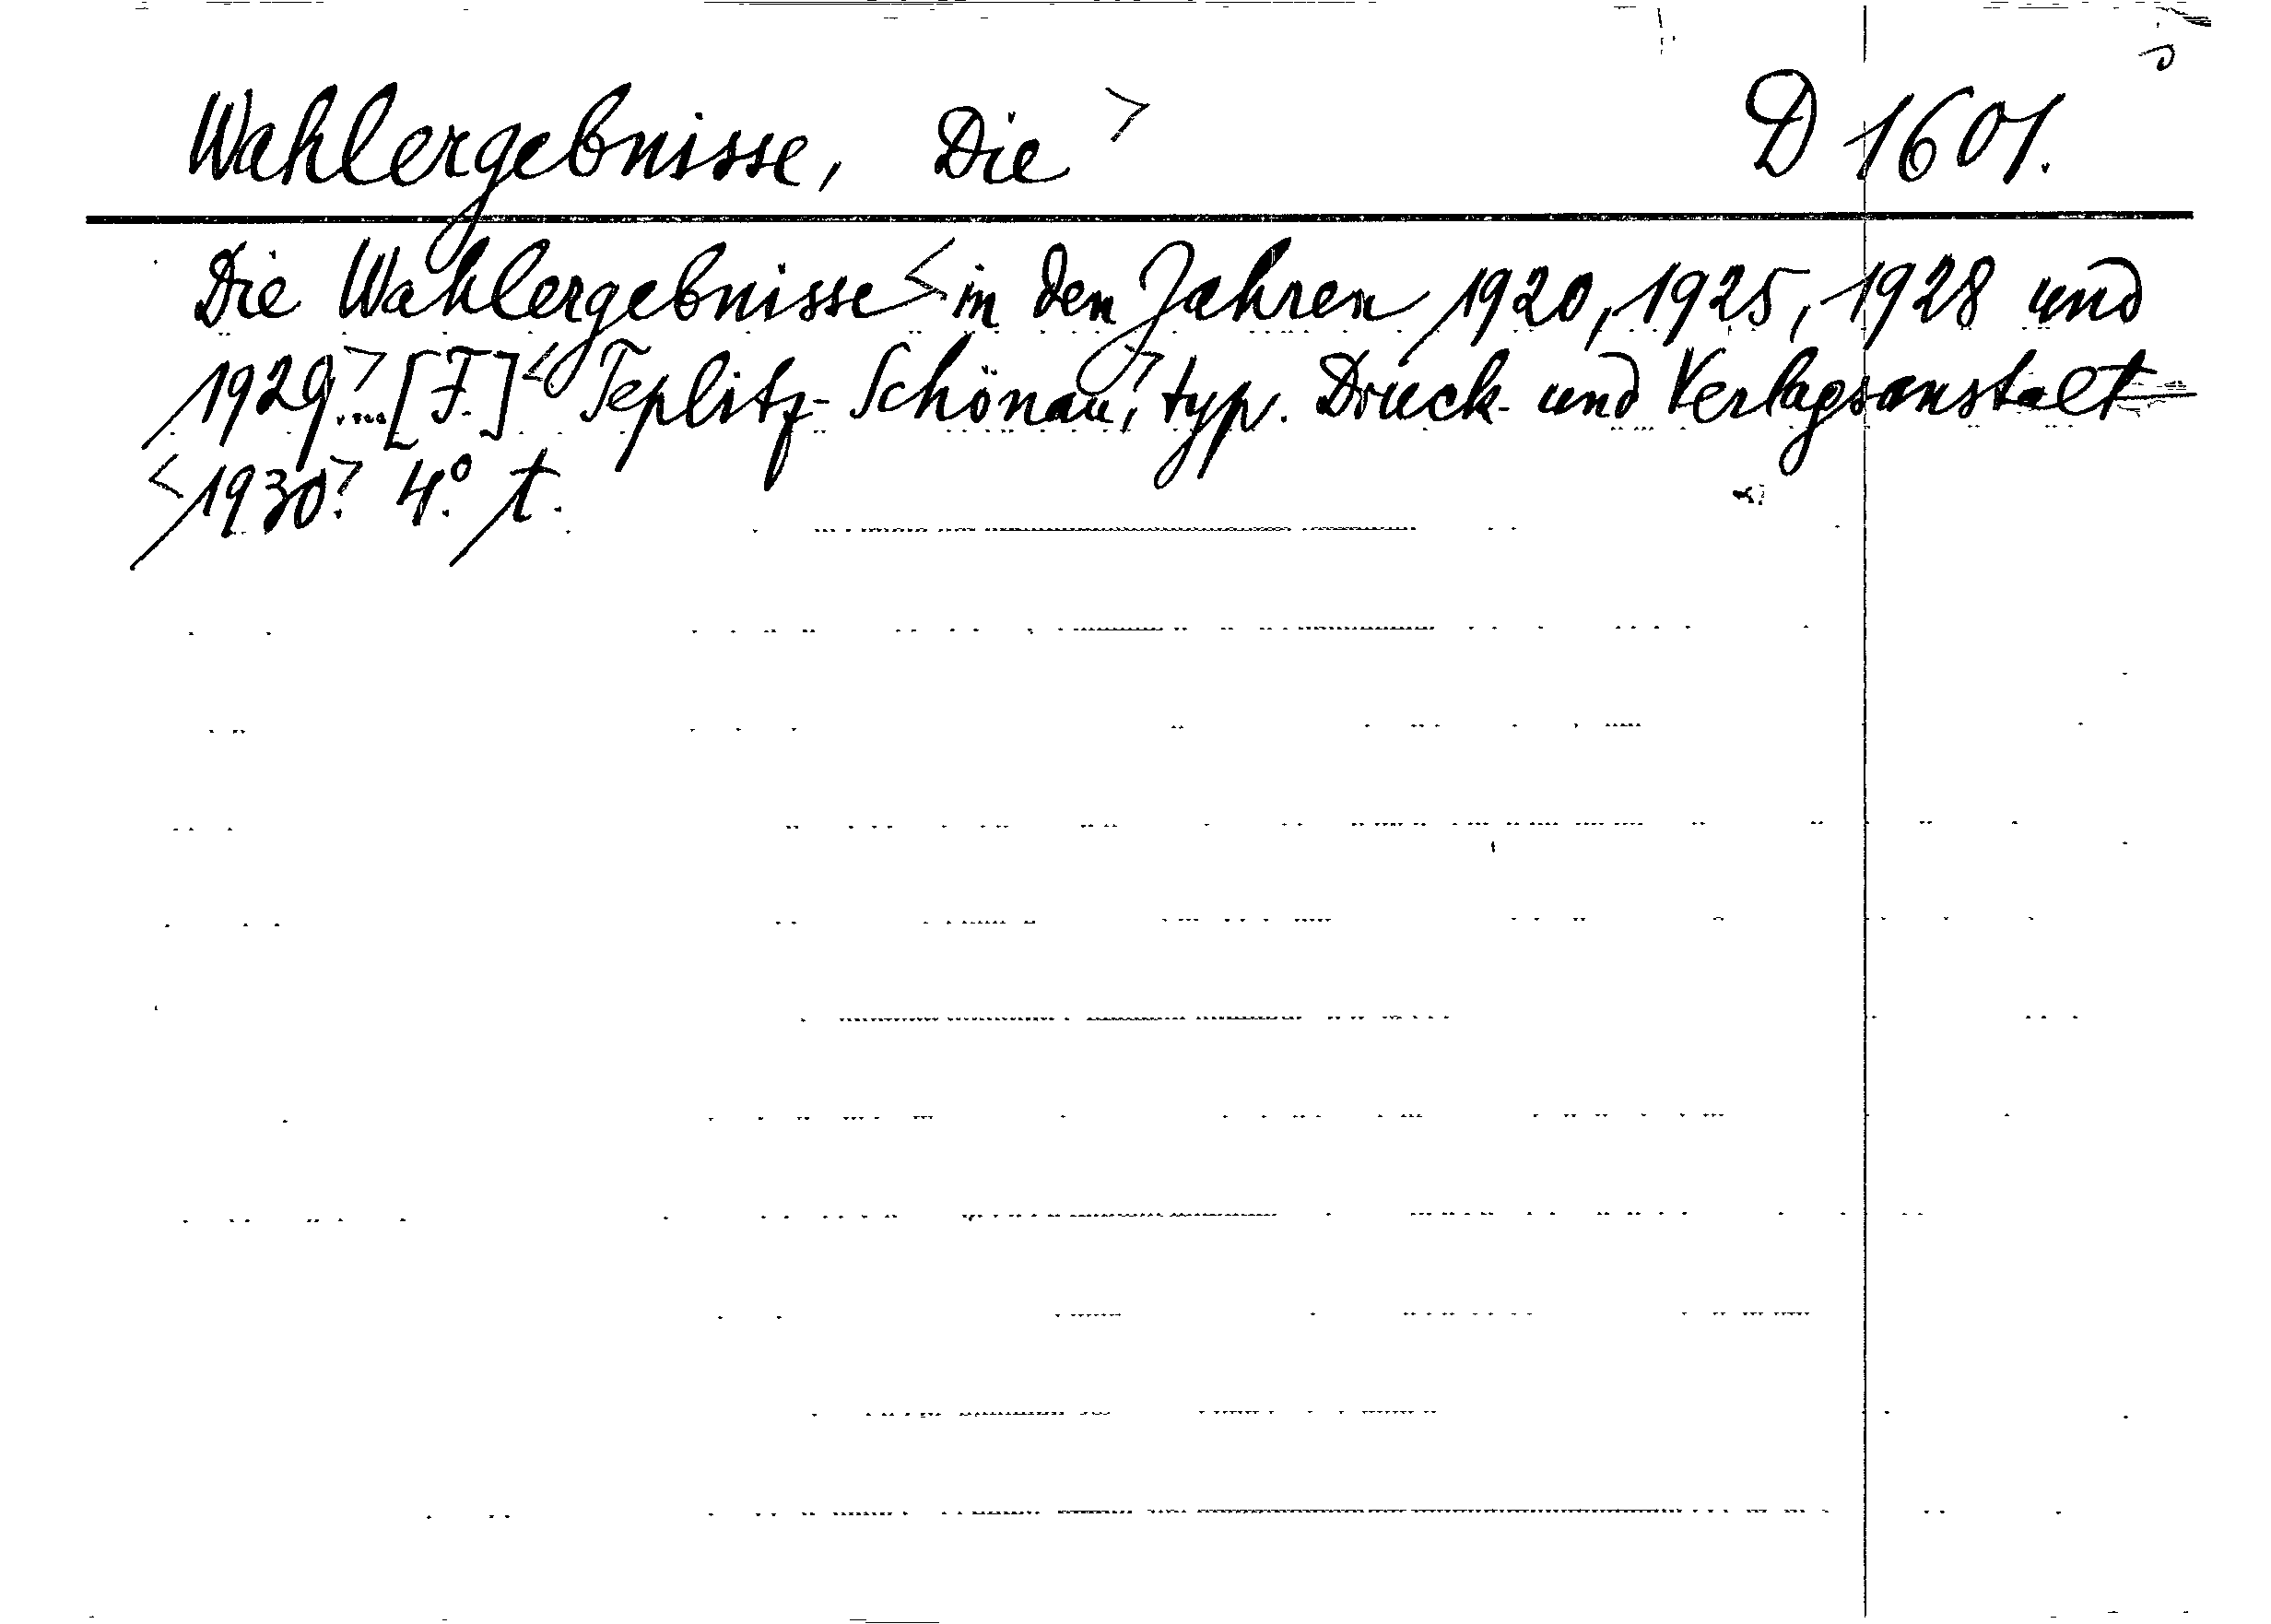 Wahlergebnisse, Die > D 1601.
Die Wahlergebnisse < in den Jahren 1920, 1925, 1928 und
1929.> ... [F.] < Teplitz-Schönau,> typ. Druck- und Verlagsanstalt
<1930>. 4.° t.